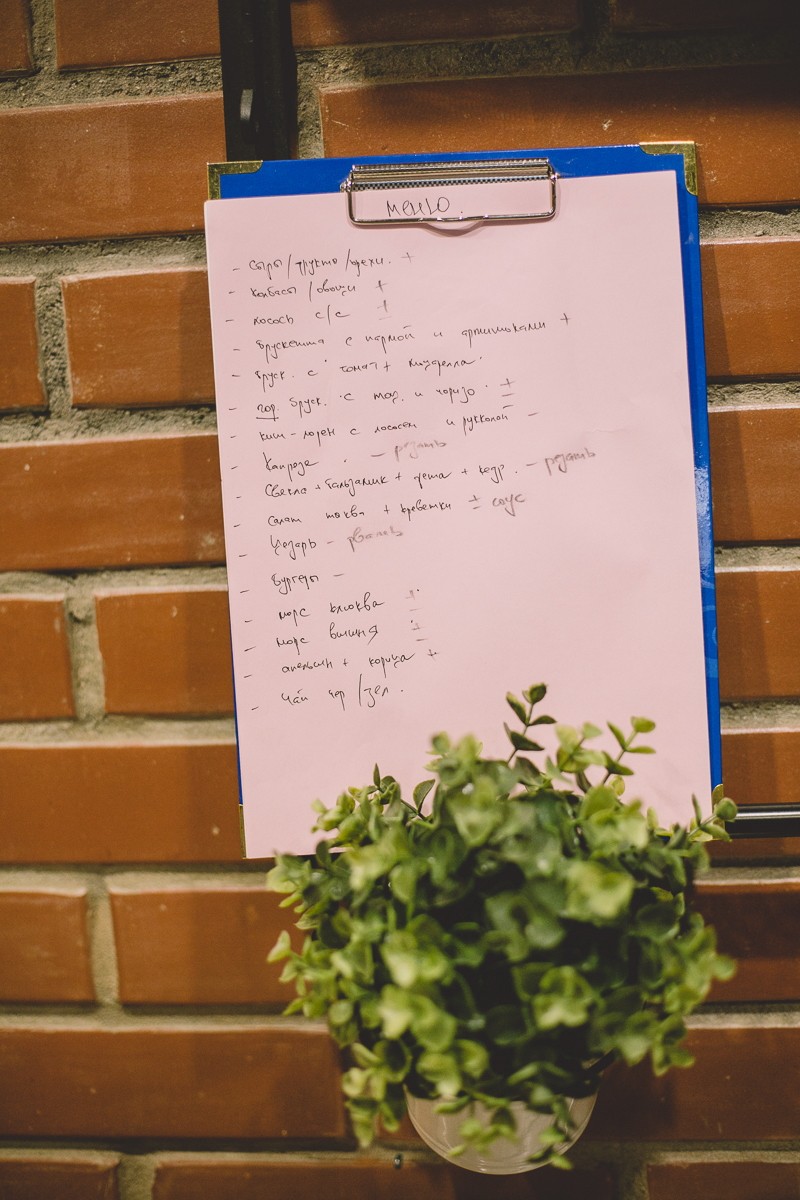 меню
- сыры/фрукты/орехи. +
- колбасы/овощи +
- лосось с/с ±
- брускетта с пармой и артишоками +
- бруск. с томат + моцарелла.
- гор. бруск. с моц. и чоризо ±
- киш-лорен с лососем и рукколой -
- Капрезе - резать
- Свекла + бальзамик + фета + кедр. - резать
- салат тыква + креветки ± соус
- Цезарь -
- бургеры -
- морс клюква ±
- морс вишня ±
- апельсин + корица +
- чай чер/зел.